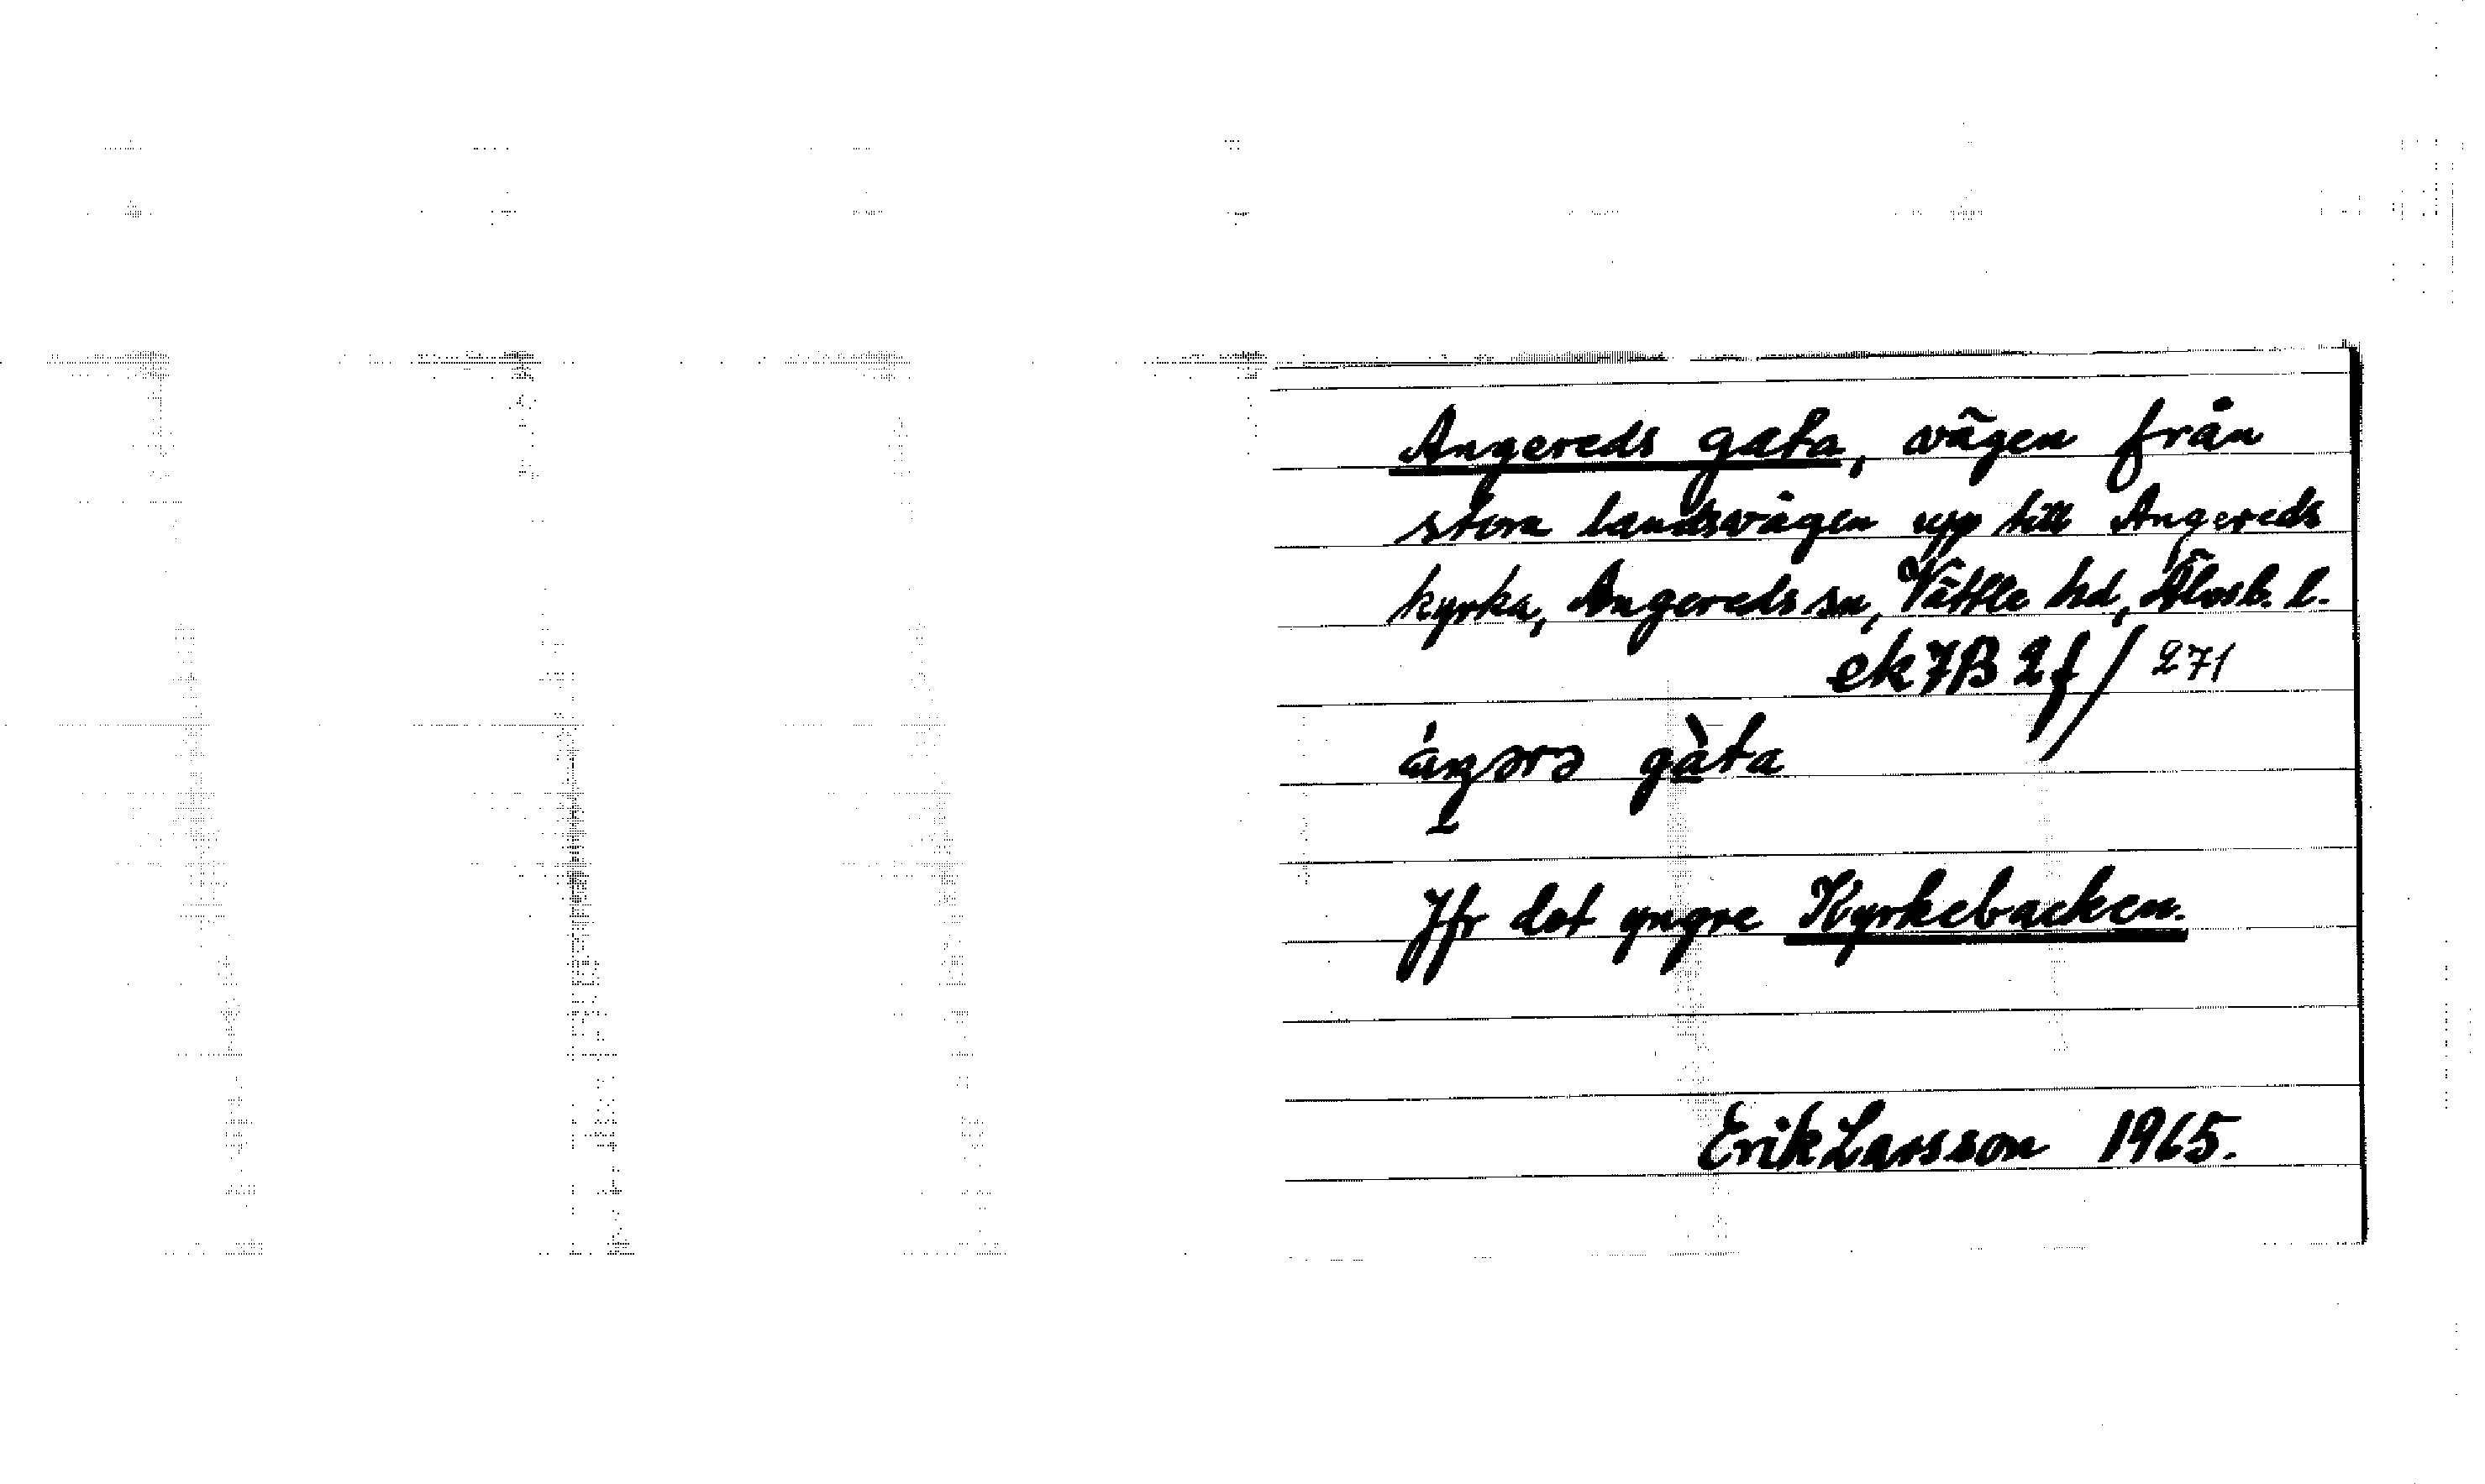 Angereds gata, vägen från
stora landsvägen upp till Angereds
kyrka, Angereds sn, Vättle hd, Älvsb. l.
ek 7B 2f / 271
áŋərə gàta
Jfr det yngre Kyrkebacken.
Erik Larsson 1965.